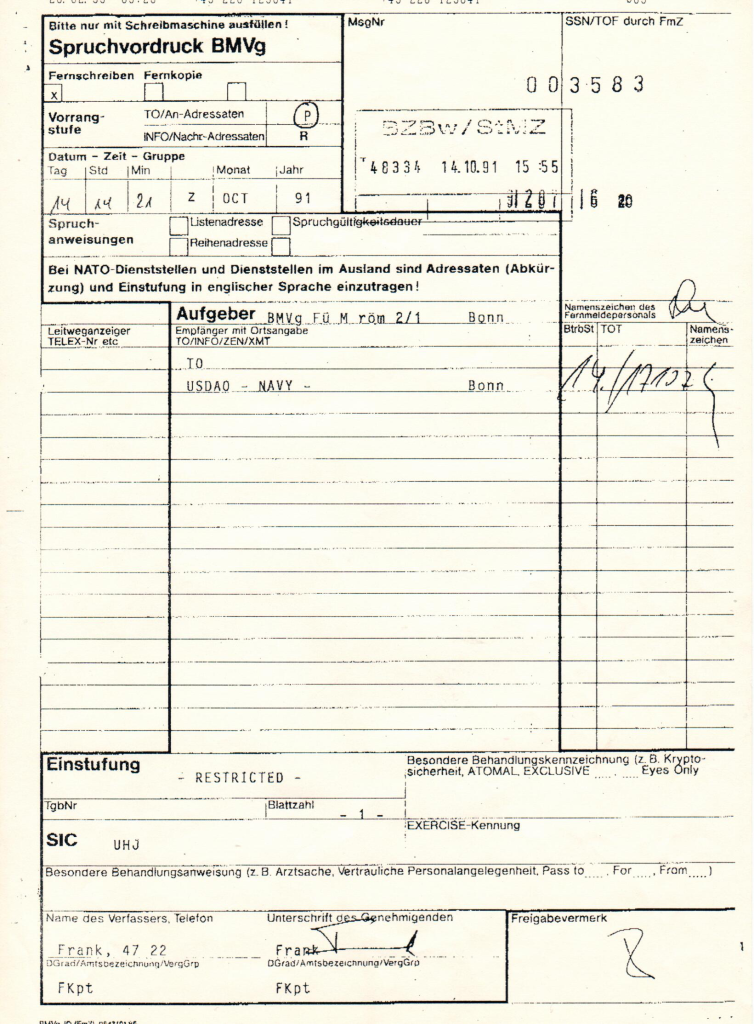 Bitte nur mit Schreibmaschine ausfüllen!
Spruchvordruck BMVg
MsgNr
SSN/TOF durch FmZ
Fernschreiben Fernkopie
x
003583
Vorrang-
stufe
TO/An-Adressaten P
INFO/Nachr-Adressaten R
BZBw/StMZ
48334 14.10.91 15 55
Datum – Zeit – Gruppe
Tag Std Min Monat Jahr
14 14 21 Z OCT 91
16 20
Spruch-
anweisungen
Listenadresse Spruchgültigkeitsdauer
Reihenadresse
Bei NATO-Dienststellen und Dienststellen im Ausland sind Adressaten (Abkür-
zung) und Einstufung in englischer Sprache einzutragen!
Leitweganzeiger
TELEX-Nr etc
Aufgeber BMVg Fü M röm 2/1 Bonn
Empfänger mit Ortsangabe
TO/INFO/ZEN/XMT
Namenszeichen des
Fernmeldepersonals
BtrbSt TOT Namens-
zeichen
TO
USDAO - NAVY - Bonn
Einstufung
- RESTRICTED -
Besondere Behandlungskennzeichnung (z. B. Krypto-
sicherheit, ATOMAL, EXCLUSIVE ..... ..... Eyes Only
TgbNr
Blattzahl
- 1 -
EXERCISE-Kennung
SIC UHJ
Besondere Behandlungsanweisung (z. B. Arztsache, Vertrauliche Personalangelegenheit, Pass to....., For....., From.....)
Name des Verfassers, Telefon
Unterschrift des Genehmigenden
Freigabevermerk
Frank, 47 22
Frank
DGrad/Amtsbezeichnung/VergGrp
DGrad/Amtsbezeichnung/VergGrp
FKpt
FKpt
1